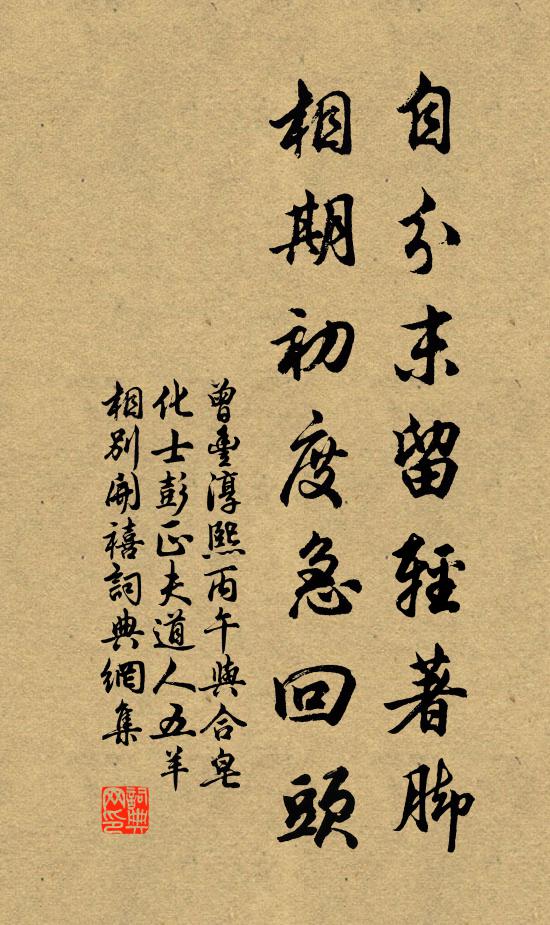 自分未留輕著脚
相期初度急回頭
曾豐淳熙丙午與合皂
化士彭正夫道人五羊
相別開禧詞典網集
詞典网印